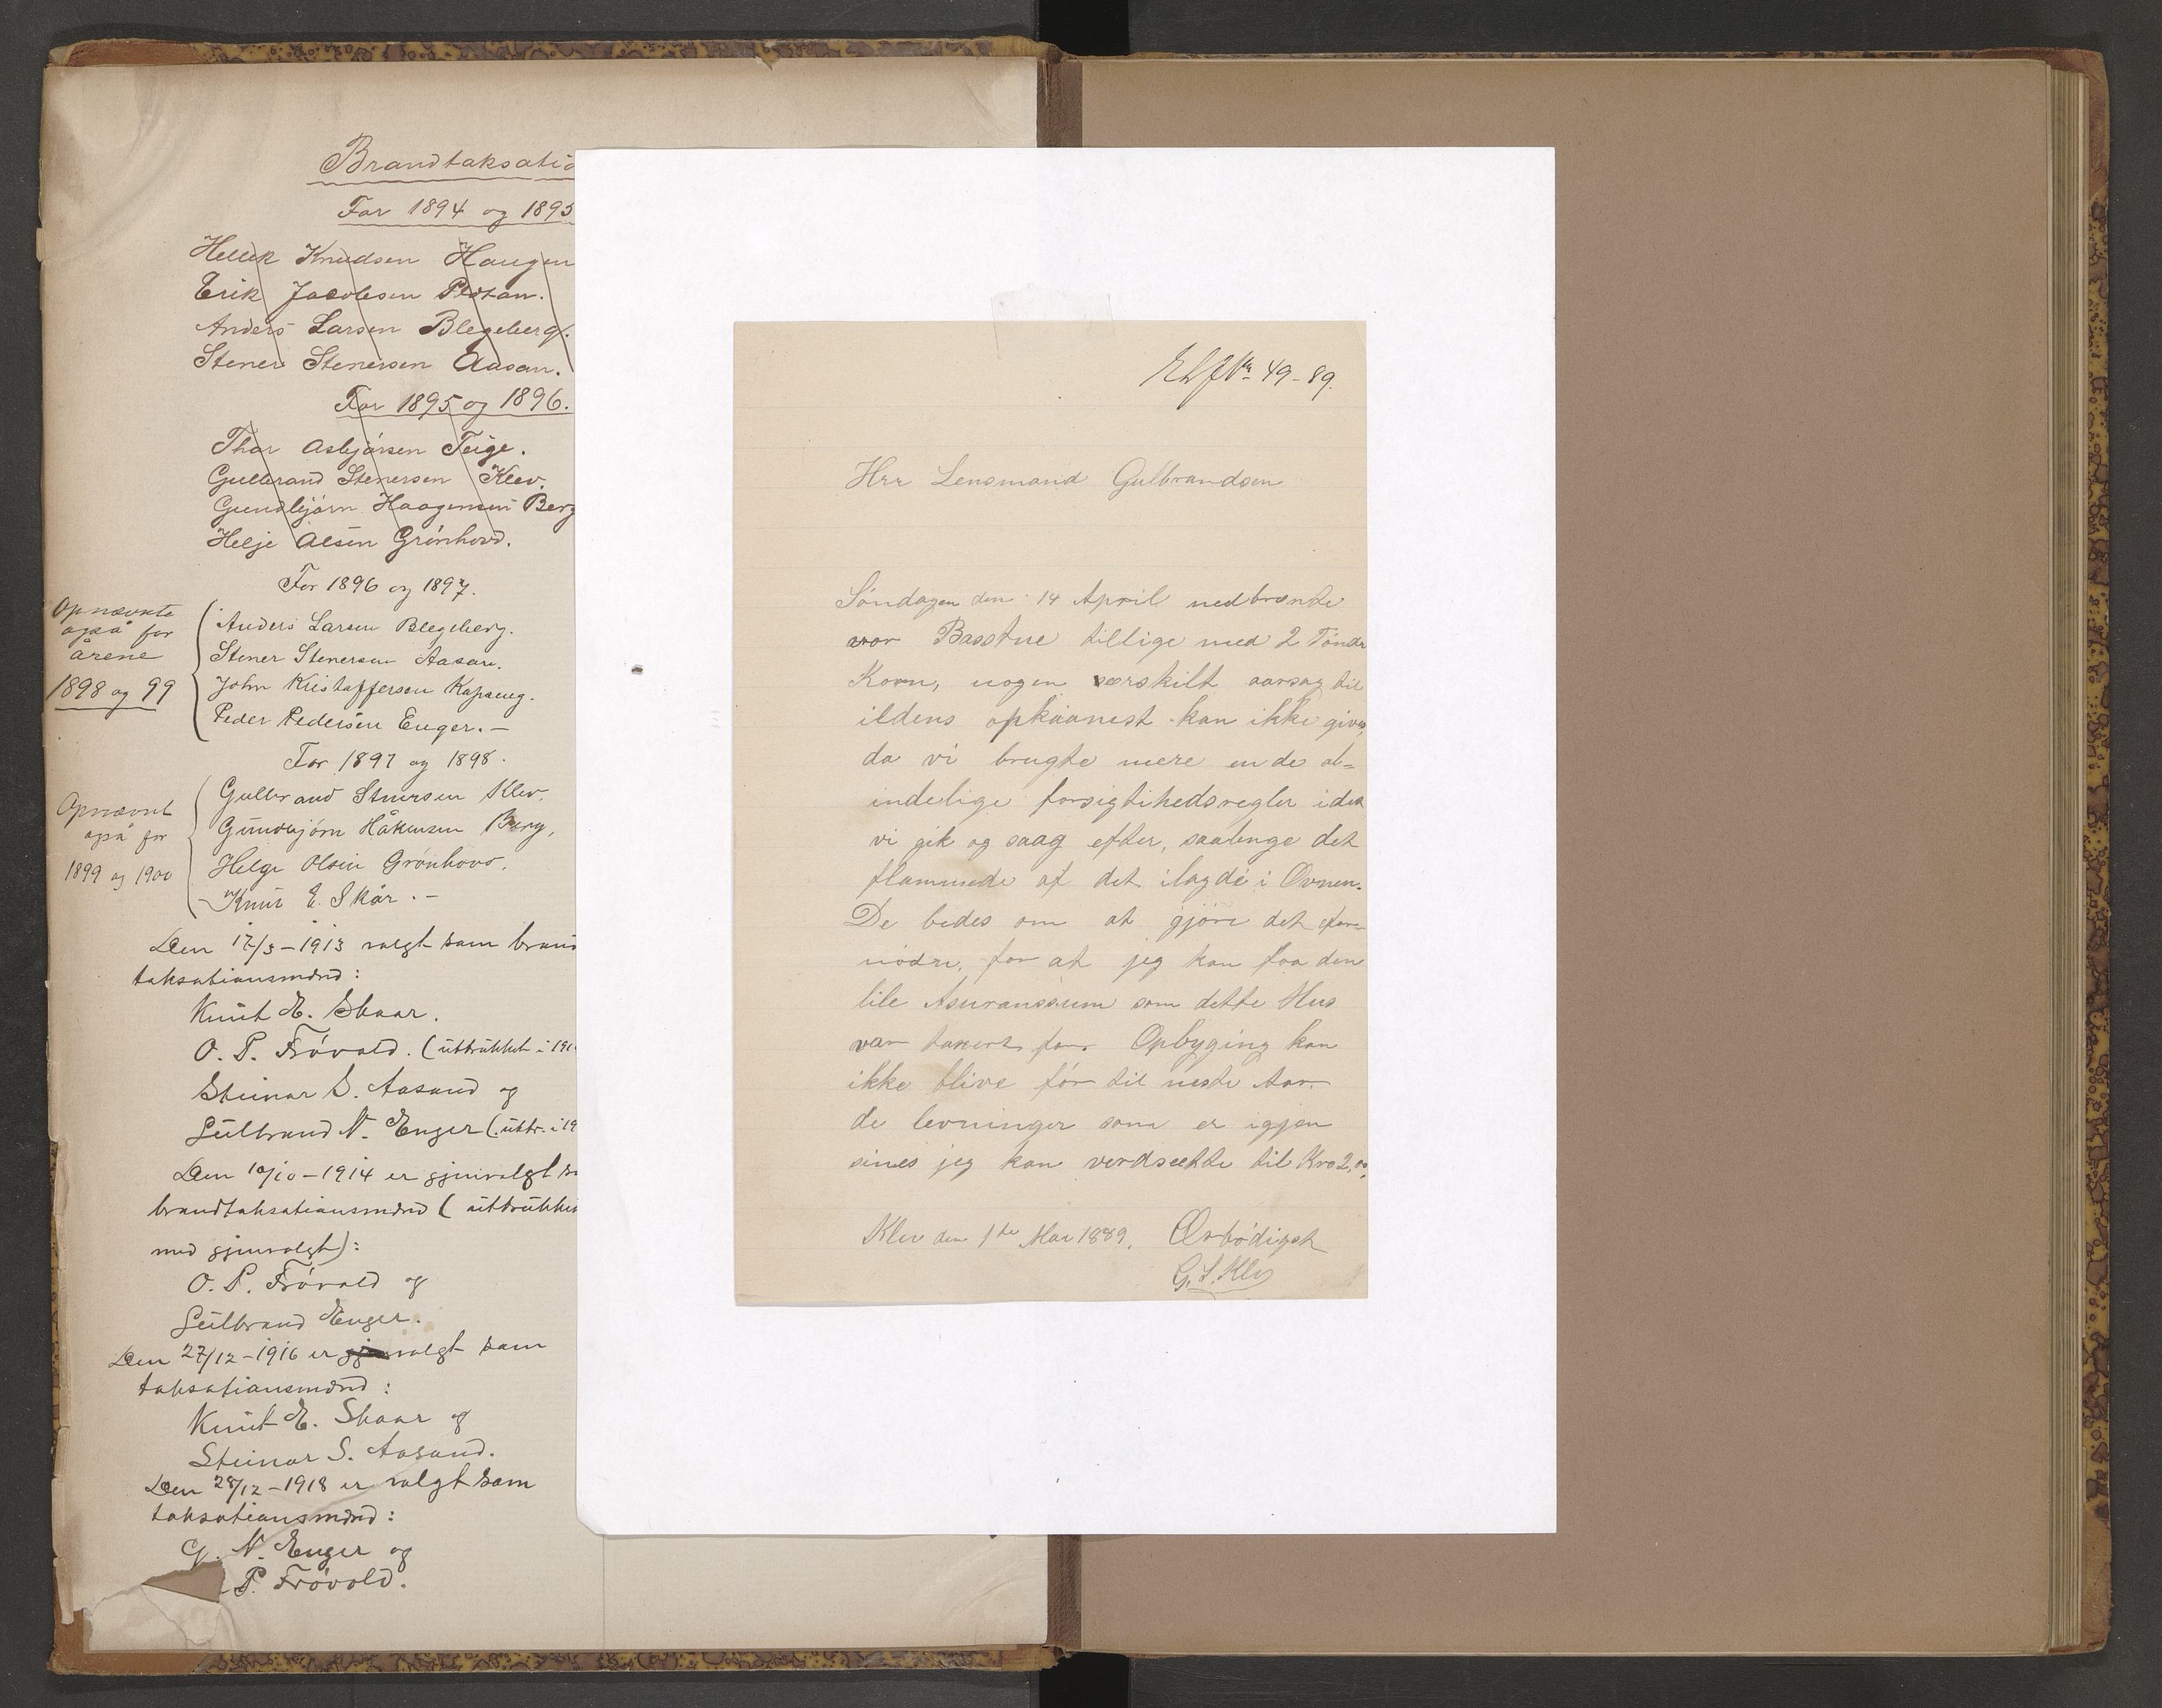 Brandtaksatio
For 1894 og 1895
Hellik Knudsen Haugen
Erik Jacobsen
Anders Larsen Blegeberg.
Stener Stenersen Aasan.
For 1895 og 1896.
Thor Asbjörsen Teige.
Gulbrand Stenersen Klev.
Gundbjörn Haagensen Berg
Helje Olsen Grönhovd.
For 1896 og 1897.
Opnævnte
også for
årene
1898 og 99
Anders Larsen Blegeberg.
Stener Stenersen Aasan.
John Kristoffersen
Peder Pedersen Enger. –
For 1897 og 1898.
Opnævnt
også for
1899 og 1900
Gulbrand Stenersen Klev,
Gundbjörn Håkensen Berg,
Helge Olsen Grönhovd,
Knut E. Skår. –
Den 17/3 – 1913 valgt som brand
taksationsmænd:
Knut E. Skaar.
O. P. Frövold. (uttrukket i 191
Steinar S. Aasand og
Gulbrand N. Enger (uttr. i 19
Den 10/10 – 1914 er gjenvalgt so
brandtaksationsmænd (uttrukket
med gjenvalgt):
O. P. Frövold og
Gulbrand Enger.
Den 27/12 – 1916 er valgt som
taksationsmænd:
Knut E. Skaar og
Steinar S. Aasand.
Den 28/12 – 1918 er valgt som
taksationsmænd:
G. N. Enger og
P. Frövold.
49 – 89.
Hrr Lensmand Gulbrandsen
Söndagen den 14 April nedbrænte
vor Basstue tillige med 2 Tönder
Korn, nogen særskilt aarsag til
ildens opkaanest kan ikke gives,
da vi brugte mere en de al=
indelige forsigtihedsregler idet
vi gik og saag efter, saalenge det
flammede af det ilagde i Ovnen.
De bedes om at gjöre det for-
nödne, for at jeg kan faa den
lile Asuranssum som dette Hus
var taxert for. Opbyging kan
ikke blive för til neste Aar.
de levninger som er igjen
sines jeg kan verdsette til Kro 2,00,
Klev den 1te Mai 1889. Ærbödigst
G. S. Klev